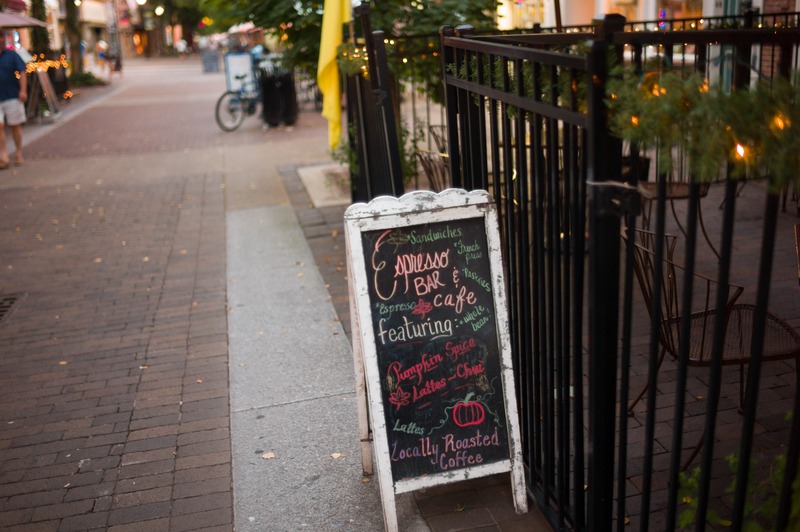 *Sandwiches
*French
press
Espresso
BAR &
*Pastries
*Espresso
cafe
featuring:
*whole
bean
Pumpkin Spice
Lattes - Chai
Lattes
Locally Roasted
Coffee